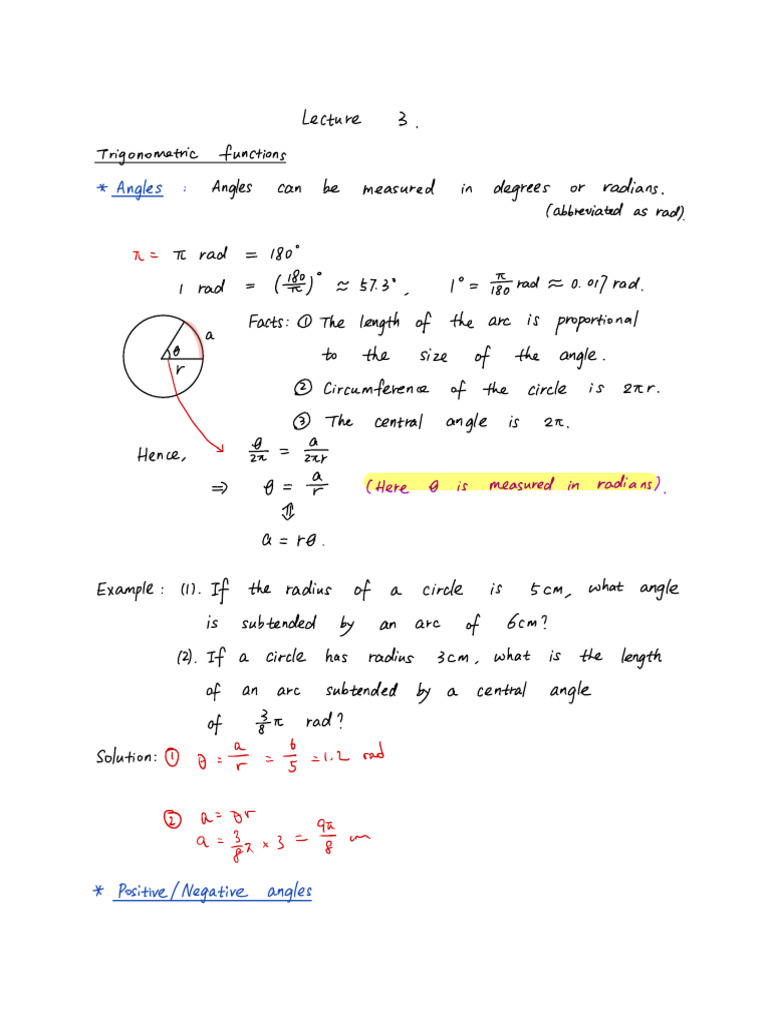 Lecture 3.
Trigonometric functions
* Angles : Angles can be measured in degrees or radians.
(abbreviated as rad).
π = π rad = 180°
1 rad = (180/π)° ≈ 57.3°, 1° = π/180 rad ≈ 0.017 rad.
Facts: ① The length of the arc is proportional
a
θ
r
to the size of the angle.
② Circumference of the circle is 2πr.
③ The central angle is 2π.
Hence, θ/2π = a/2πr
⇒ θ = a/r (Here θ is measured in radians).
⇕
a = rθ.
Example: (1). If the radius of a circle is 5cm, what angle
is subtended by an arc of 6cm?
(2). If a circle has radius 3cm, what is the length
of an arc subtended by a central angle
of 3/8 π rad?
Solution: ① θ = a/r = 6/5 = 1.2 rad
② a = θr
a = 3/8 π × 3 = 9π/8 cm
* Positive/Negative angles